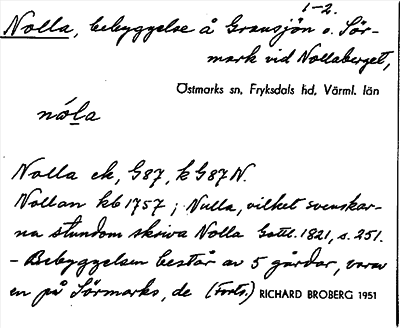 1-2.
Nolla, bebyggelse å Gransjön o. Sör-
mark vid Nollaberget,
Östmarks sn, Fryksdals hd, Värml. län
nól̲a
Nolla ek, G87, k G87 N.
Nollan kb 1757; Nulla, vilket svenskar-
na stundom skriva Nolla Gottl. 1821, s. 251.
- Bebyggelsen består av 5 gårdar, varav
en på Sörmarks, de (Forts.) RICHARD BROBERG 1951